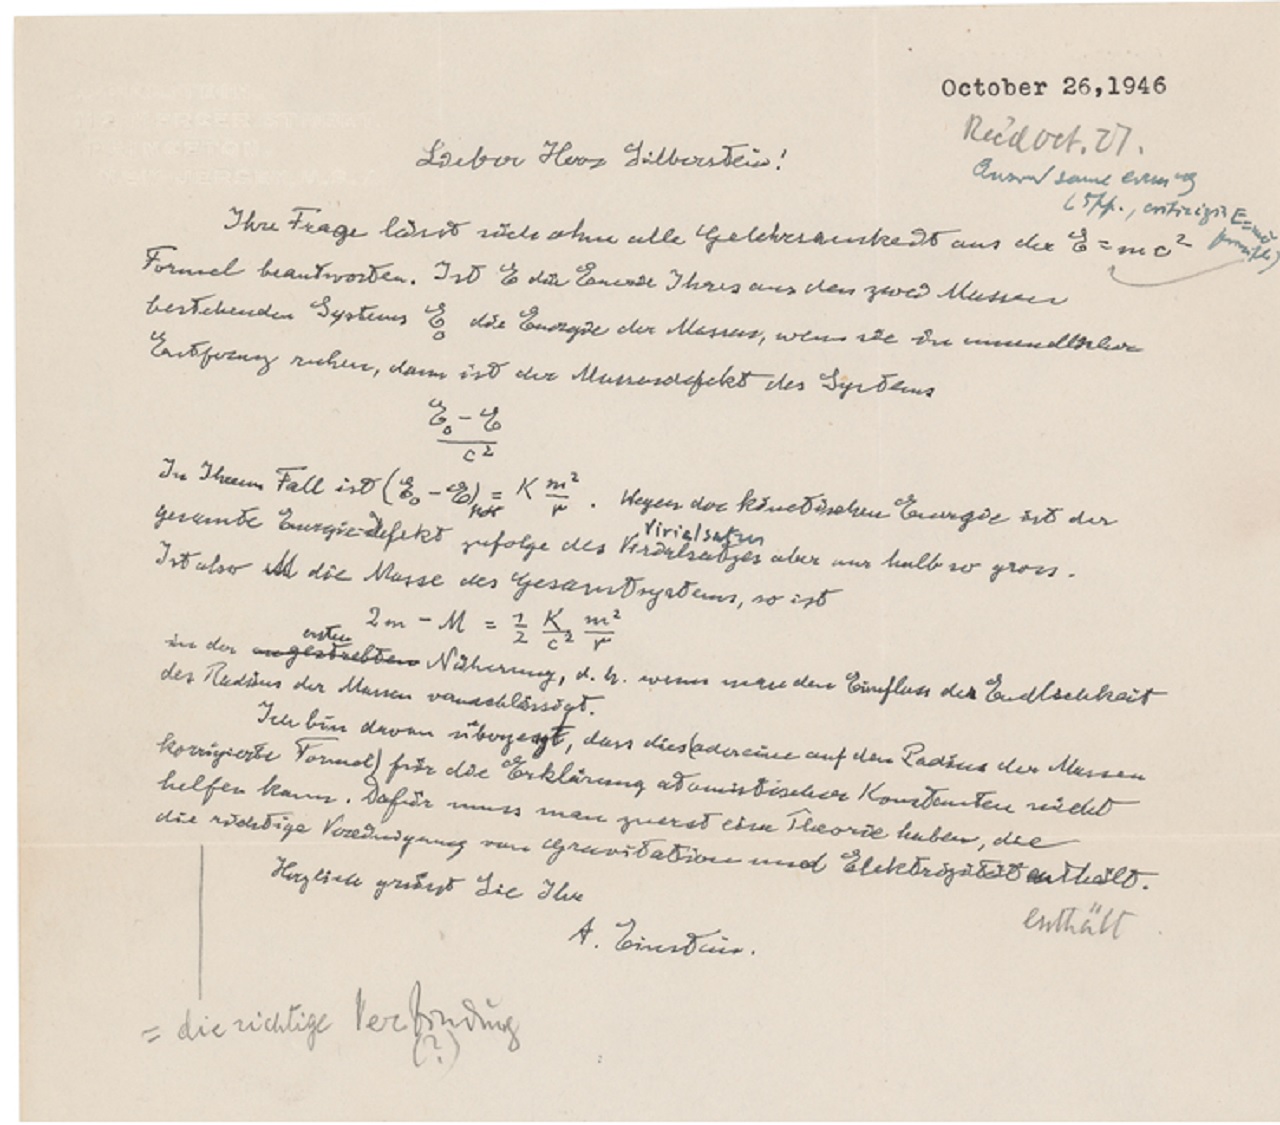 October 26,1946
Rec'd Oct. 27.
Answ'd same evening
(5pp., criticizing E=mc²
Lieber Herr Silberstein!
Ihre Frage lässt sich ohne alle Gelehrsamkeit aus der E = mc²
Formel beantworten. Ist E die Energie Ihres aus den zwei Massen
bestehenden Systems E₀ die Energie der Massen, wenn sie in unendlicher
Entfernung ruhen, dann ist der Massendefekt des Systems
(E₀ - E)/c²
In Ihrem Fall ist (E₀ - E) = K m²/r . Wegen der kinetischen Energie ist der
Virialsatzes
gesamte Energie-Defekt zufolge des Virialsatzes aber nur halb so gross.
Ist also M die Masse des Gesamtsystems, so ist
2m - M = 1/2 K/c² m²/r
ersten
in der Näherung, d. h. wenn man den Einfluss der Endlichkeit
des Radius der Massen vernachlässigt.
Ich bin davon überzeugt, dass dies (oder eine auf den Radius der Massen
korrigierte Formel) für die Erklärung atomistischer Konstanten nicht
helfen kann. Dafür muss man zuerst eine Theorie haben, die
die richtige Vereinigung von Gravitation und Elektrizität enthält.
Herzlich grüsst Sie Ihr
enthält
A. Einstein.
= die richtige Verbindung
(?)